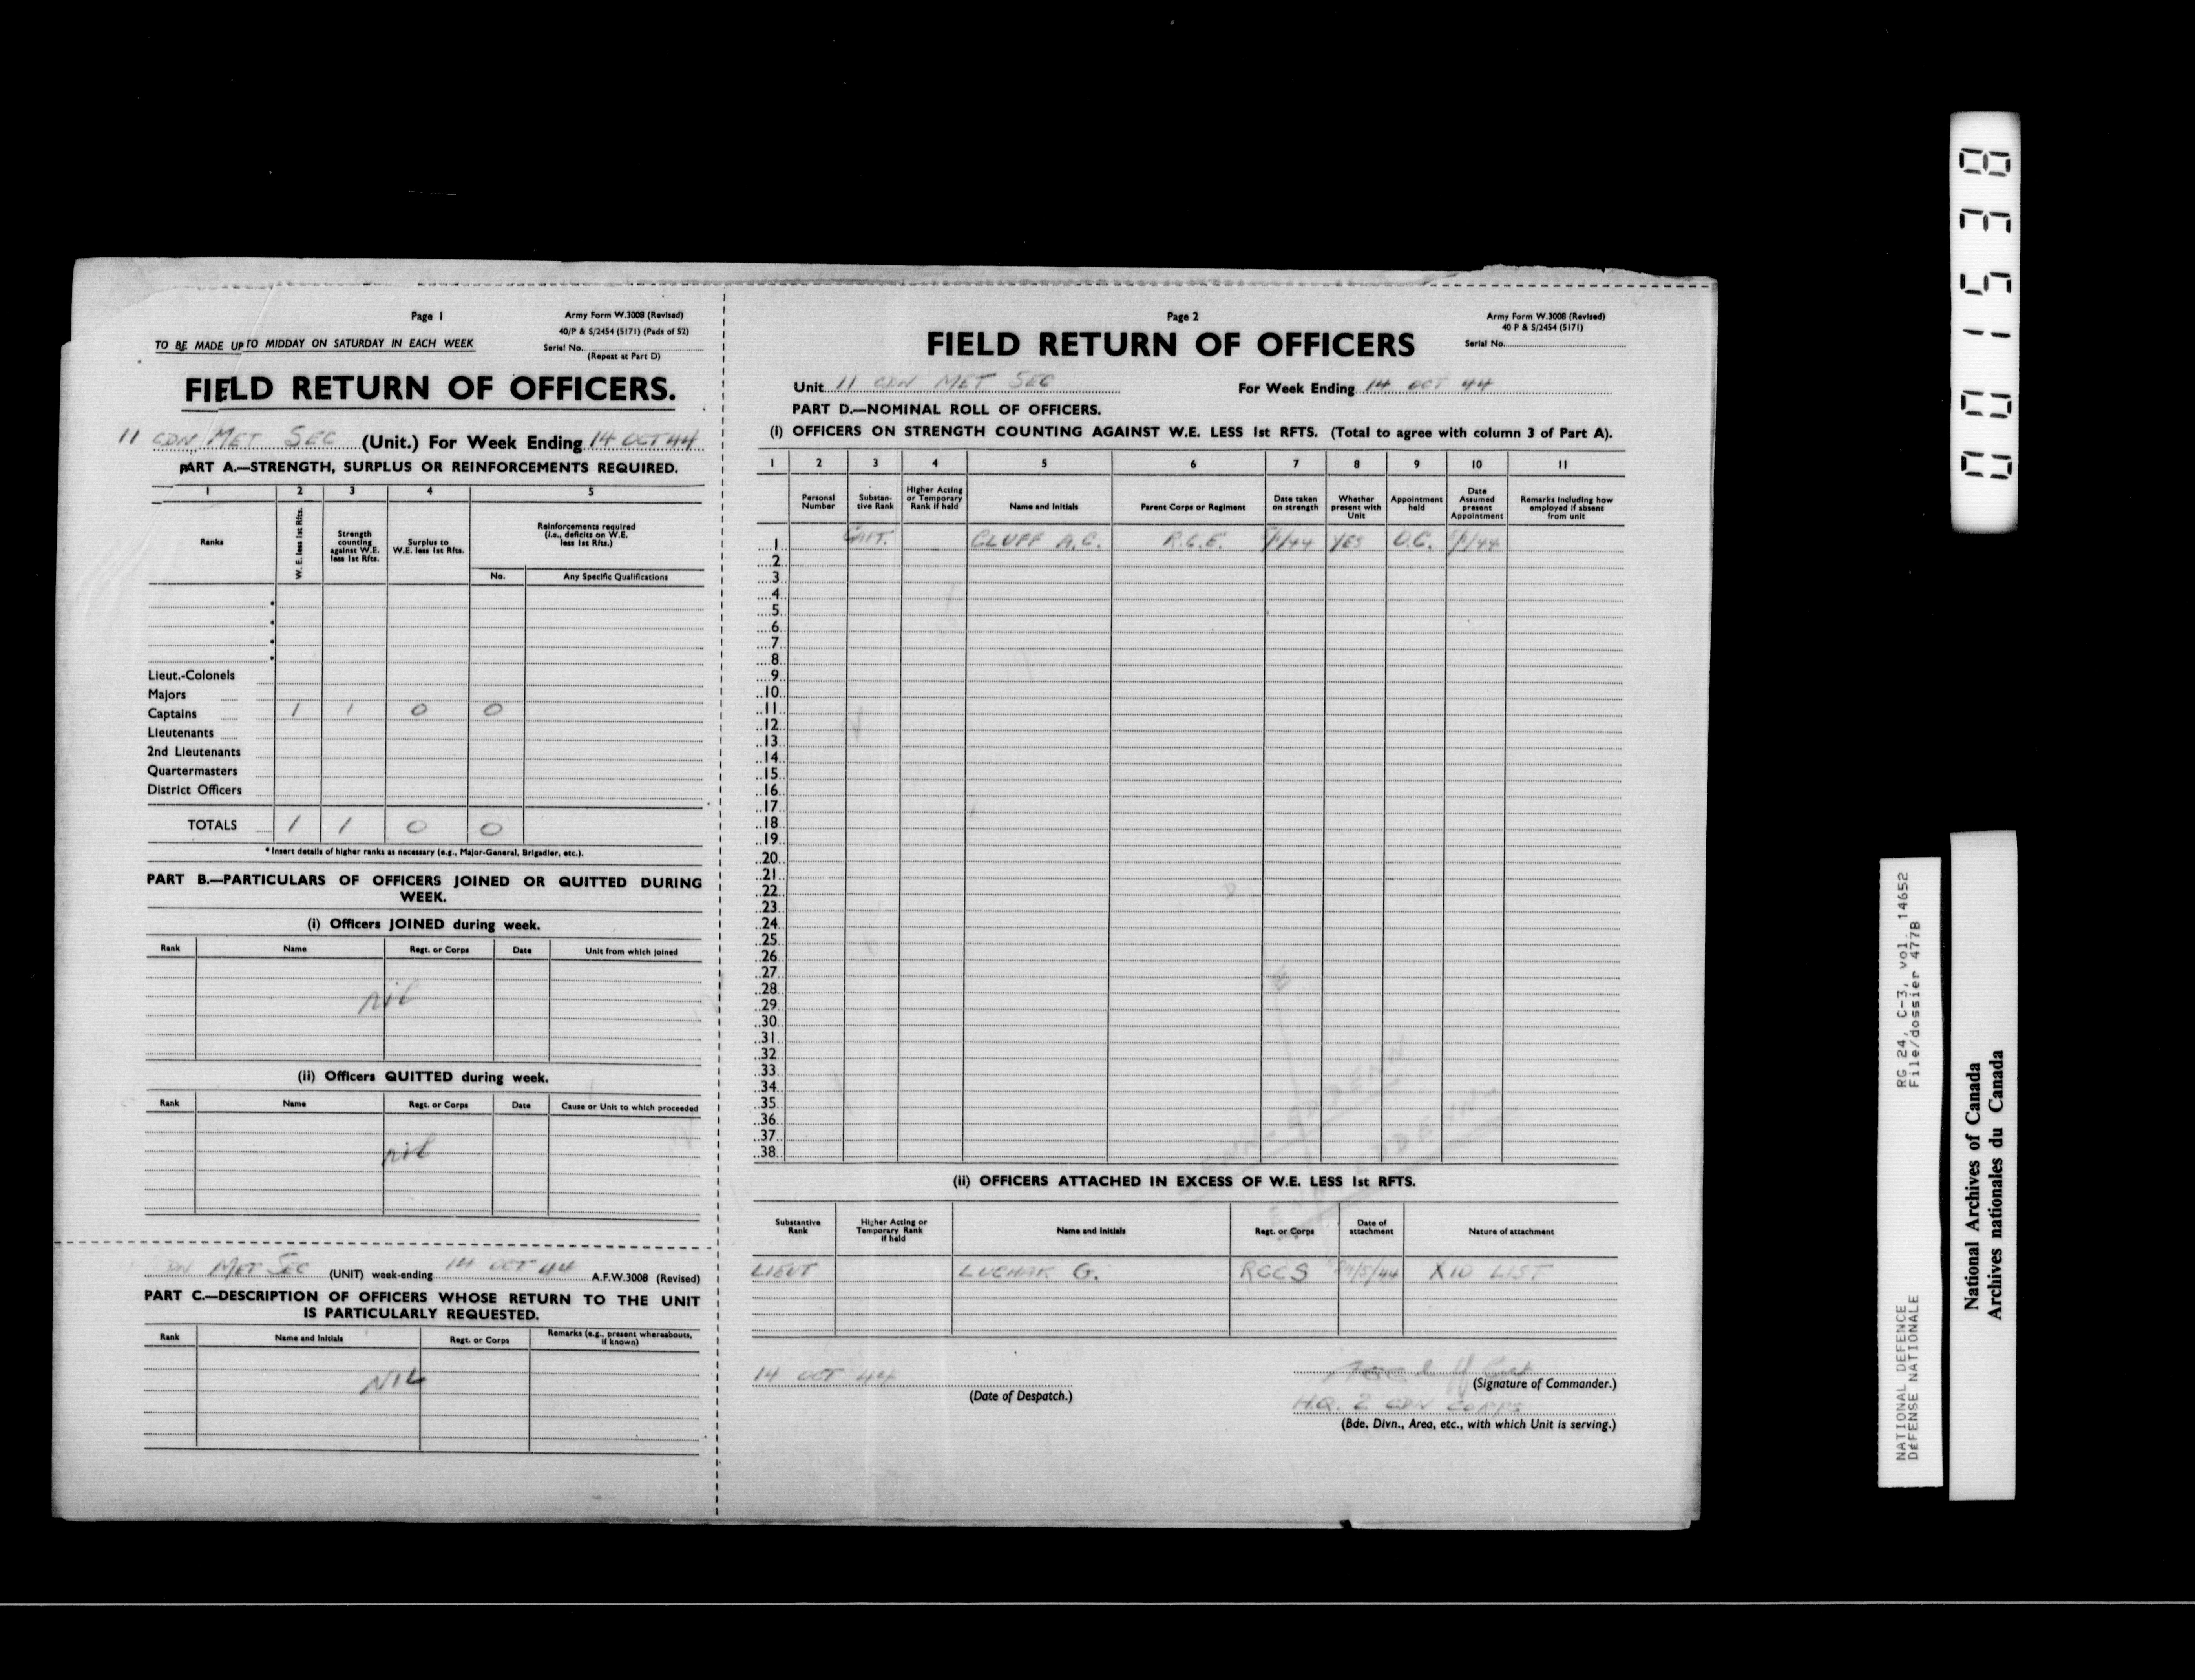 Page 1
Army Form W.3008 (Revised)
40/P & S/2454 (5171) (Pads of 52)
TO BE MADE UP TO MIDDAY ON SATURDAY IN EACH WEEK
Serial No.
(Repeat at Part D)
FIELD RETURN OF OFFICERS.
11 CDN MET SEC (Unit.) For Week Ending 14 OCT 44
PART A.—STRENGTH, SURPLUS OR REINFORCEMENTS REQUIRED.
1 2 3 4 5
Ranks
W. E. less 1st Rfts.
Strength counting against W.E. less 1st Rfts.
Surplus to W.E. less 1st Rfts.
Reinforcements required (i.e., deficits on W.E. less 1st Rfts.)
No. Any Specific Qualifications
Lieut.-Colonels
Majors
Captains 1 1 0 0
Lieutenants
2nd Lieutenants
Quartermasters
District Officers
TOTALS 1 1 0 0
* Insert details of higher ranks as necessary (e.g., Major-General, Brigadier, etc.).
PART B.—PARTICULARS OF OFFICERS JOINED OR QUITTED DURING
WEEK.
(i) Officers JOINED during week.
Rank Name Regt. or Corps Date Unit from which joined
nil
(ii) Officers QUITTED during week.
Rank Name Regt. or Corps Date Cause or Unit to which proceeded
nil
DN MET SEC (UNIT) week-ending 14 OCT 44 A.F.W.3008 (Revised)
PART C.—DESCRIPTION OF OFFICERS WHOSE RETURN TO THE UNIT
IS PARTICULARLY REQUESTED.
Rank Name and Initials Regt. or Corps Remarks (e.g., present whereabouts, if known)
NIL
Page 2
Army Form W.3008 (Revised)
40 P & S/2454 (5171)
Serial No.
FIELD RETURN OF OFFICERS
Unit 11 CDN MET SEC For Week Ending 14 OCT 44
PART D.—NOMINAL ROLL OF OFFICERS.
(i) OFFICERS ON STRENGTH COUNTING AGAINST W.E. LESS 1st RFTS. (Total to agree with column 3 of Part A).
1 2 3 4 5 6 7 8 9 10 11
Personal Number
Substantive Rank
Higher Acting or Temporary Rank if held
Name and Initials
Parent Corps or Regiment
Date taken on strength
Whether present with Unit
Appointment held
Date Assumed present Appointment
Remarks including how employed if absent from unit
1 CAPT. CLUFF A.C. R.C.E. /1/44 YES O.C. /1/44
2
3
4
5
6
7
8
9
10
11
12
13
14
15
16
17
18
19
20
21
22
23
24
25
26
27
28
29
30
31
32
33
34
35
36
37
38
(ii) OFFICERS ATTACHED IN EXCESS OF W.E. LESS 1st RFTS.
Substantive Rank
Higher Acting or Temporary Rank if held
Name and Initials
Regt. or Corps
Date of attachment
Nature of attachment
LIEUT LUCHAK G. RCCS 24/5/44 X10 LIST
14 OCT 44
(Date of Despatch.)
(Signature of Commander.)
H.Q. 2 CDN CORPS
(Bde. Divn., Area, etc., with which Unit is serving.)
001538
NATIONAL DEFENCE RG 24, C-3, vol. 14652
DÉFENSE NATIONALE File/dossier 477B
National Archives of Canada
Archives nationales du Canada